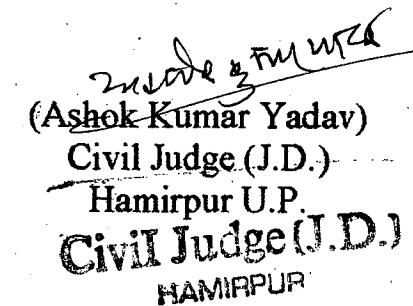 अशोक कुमार यादव
(Ashok Kumar Yadav)
Civil Judge (J.D.)
Hamirpur U.P.
Civil Judge (J.D.)
HAMIRPUR